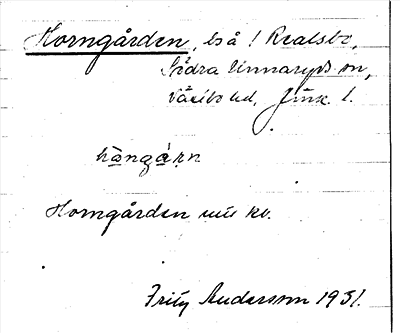 Horngården, bså ! Realsbo,
Södra Unnaryds sn,
Västbo hd, Jönk. l.
hɷ̀ngà̱ṇn
Horngården
Fritz Andersson 1931.